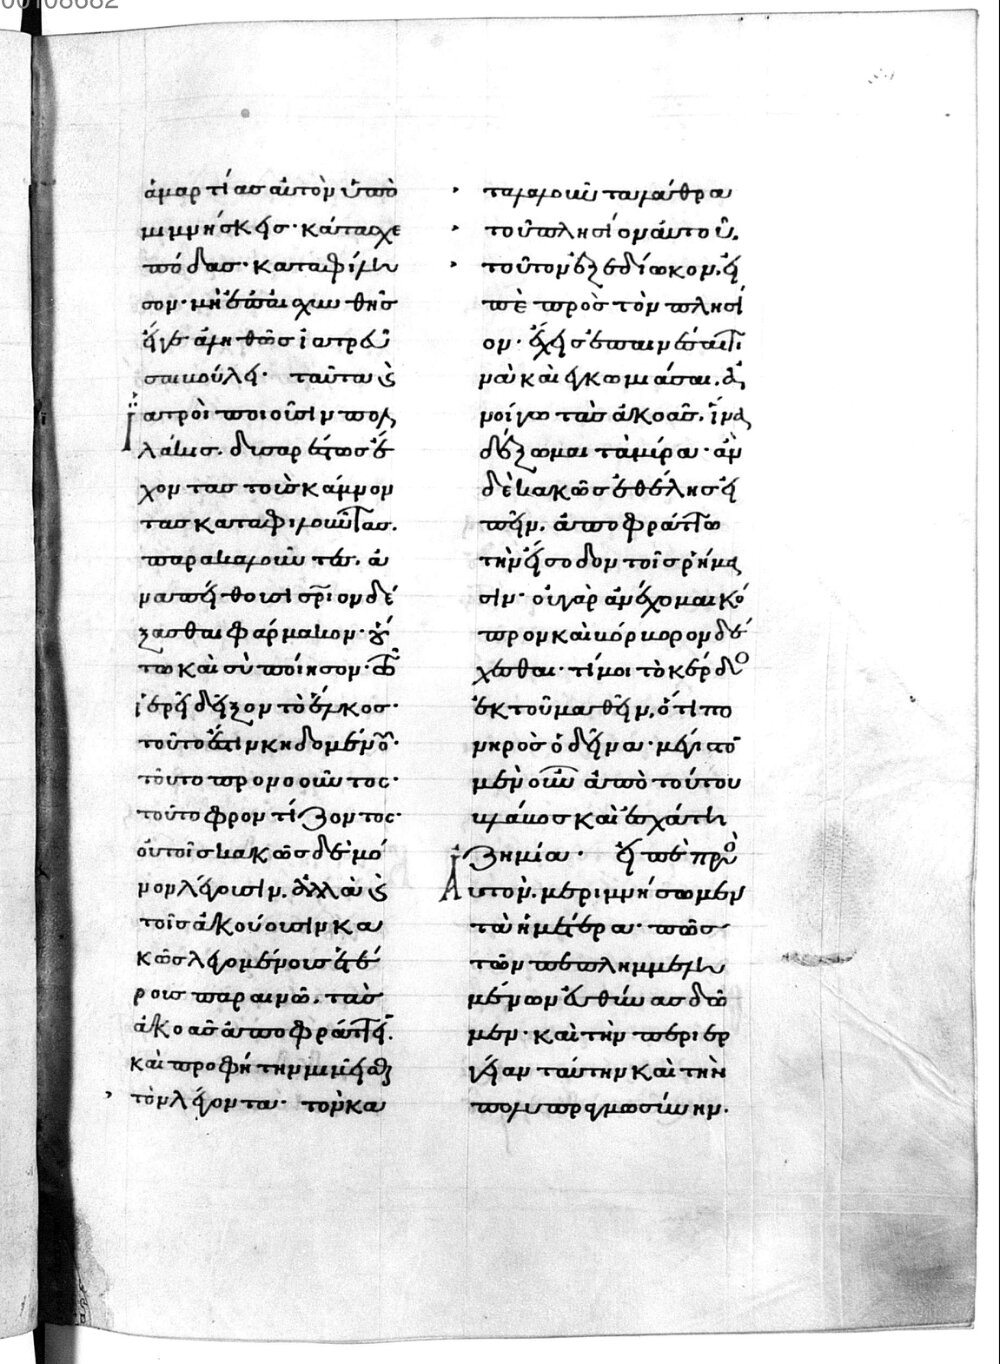 00108682
ἁμαρτίας αὐτὸν ὑπο
μιμνήσκεις· κάτασχε
πόδας· καταφίλη
σον· μὴ ἐπαισχυνθῇς
εἴγε ἀληθῶς ἰατρεῦ
σαι βούλει· ταῦτα καὶ
ἰατροὶ ποιοῦσιν πολ
λάκις. δυσαρέστως ἔ
χοντας τοὺς κάμνον
τας καταφιλοῦντας.
παρακαλοῦντες. ἀ
ναπείθουσι σωτήριον δέ
ξασθαι φάρμακον· οὕ
τω καὶ σὺ ποίησον· τῶ
ἱερεῖ δεῖξον τὸ ἕλκος·
τοῦτό ἐστιν κηδομένου·
τοῦτο προνοοῦντος·
τοῦτο φροντίζοντος·
οὐ τοῖς κακῶς δὲ μό
νον λέγουσιν. ἀλλὰ καὶ
τοῖς ἀκούουσιν κα
κῶς λεγομένους ἑτέ
ρους παραινῶ. τὰς
ἀκοὰς ἀποφράττειν.
καὶ προφήτην μιμεῖσθαι
τὸν λέγοντα· τὸν κα
ταλαλοῦντα λάθρα
τοῦ πλησίον αὐτοῦ.
τοῦτον ἐξεδίωκον. εἰ
πὲ πρὸς τὸν πλησί
ον· ἔχεις ἐπαινέσαι τι
νὰ καὶ ἐγκωμιάσαι. ἀ
νοίγω τὰς ἀκοάς. ἵνα
δέξωμαι τὰ μύρα· ἂν
δὲ κακῶς ἐθέλῃς εἰ
πεῖν. ἀποφράττω
τὴν εἴσοδον τοῖς ῥήμα
σιν· οὐ γὰρ ἀνέχομαι κό
προν καὶ βόρβορον δέ
χεσθαι· τί μοι τὸ κέρδος
ἐκ τοῦ μαθεῖν, ὅτι πο
νηρὸς ὁ δεῖνα· μεγίστη
μὲν οὖν ἀπὸ τούτου
βλάβος καὶ ἐσχάτη
ζημία· εἰπὲ πρὸς
αὐτὸν. μεριμνήσωμεν
τὰ ἡμέτερα· πῶς
τῶν πεπλημμελη
μένων εὐθύνας δῶ
μεν· καὶ τὴν περιερ
γείαν ταύτην καὶ τὴν
πολυπραγμοσύνην.